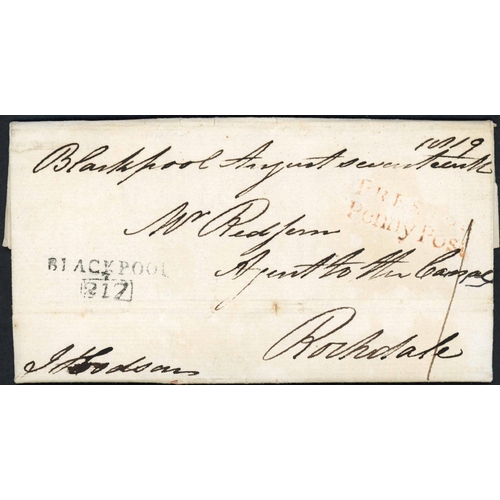 1819
Blackpool August seventeenth
PRES
Penny Post
Mr Redfern
BLACKPOOL
217
Agent to the Canal
Rochdale
J Hodson